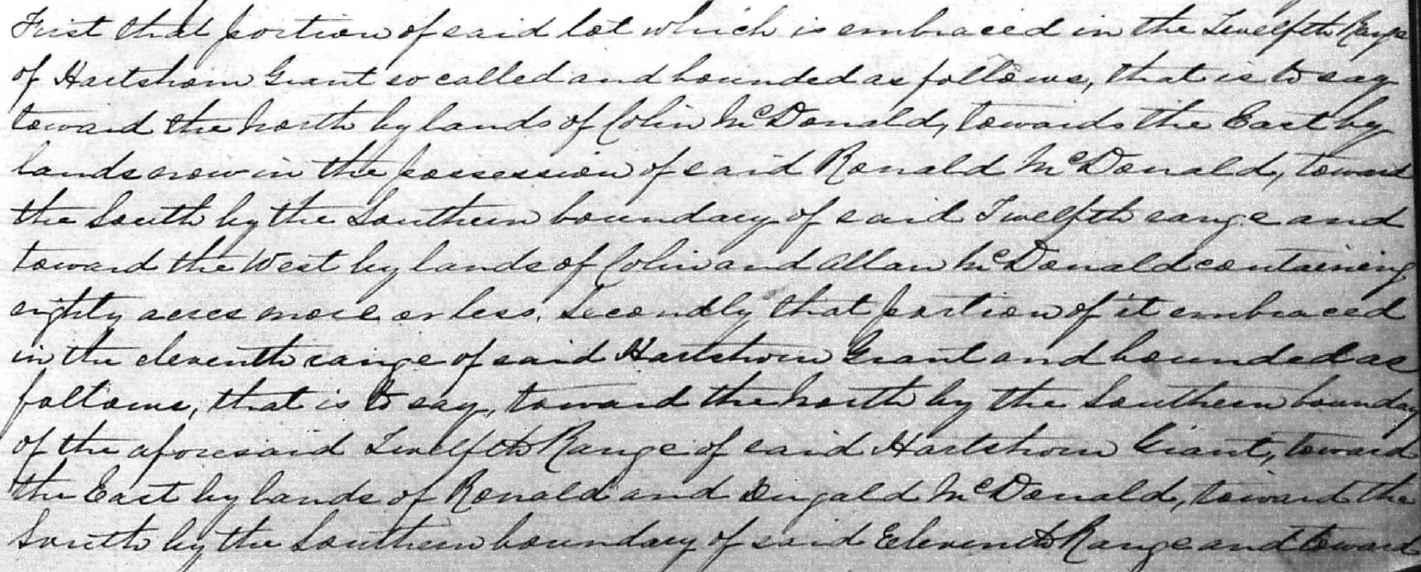 First that portion of said lot which is embraced in the Twelfth Range
of Hartshorn Grant so called and bounded as follows, that is to say
toward the North by lands of Colin McDonald, towards the East by
lands now in the possession of said Ronald McDonald, toward
the South by the Southern boundary of said Twelfth range and
toward the West by lands of Colin and Allan McDonald containing
eighty acres more or less. Secondly that portion of it embraced
in the eleventh range of said Hartshorn Grant and bounded as
follows, that is to say, toward the North by the Southern boundary
of the aforesaid Twelfth Range of said Hartshorn Grant, toward
the East by lands of Ronald and Dugald McDonald, toward the
South by the Southern boundary of said Eleventh Range and toward